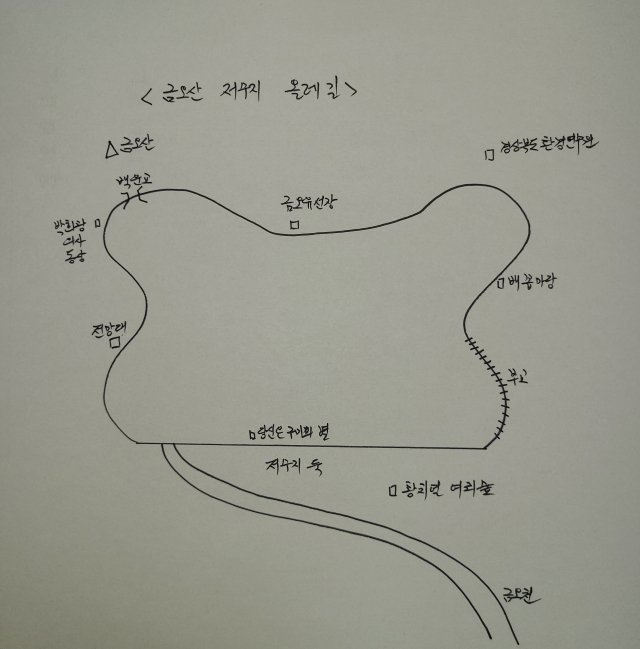 <금오산 저수지 올레길>
금오산
경상북도환경연수원
백운교
금오유선장
박희광
여사
동상
배꼽마당
전망대
부교
당신은 구미의 별
저수지 둑
황치열 여리숲
금오천